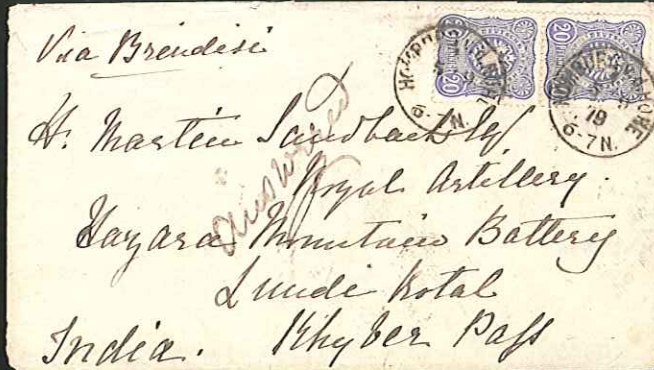 Via Brindisi
20 20
HOMBURG v.d. HÖHE
79
6-7N.
H. Martin Sandbach Esq
Royal Artillery.
answered
Hazara Mountain Battery
Lundi Kotal
India. Khyber Pass